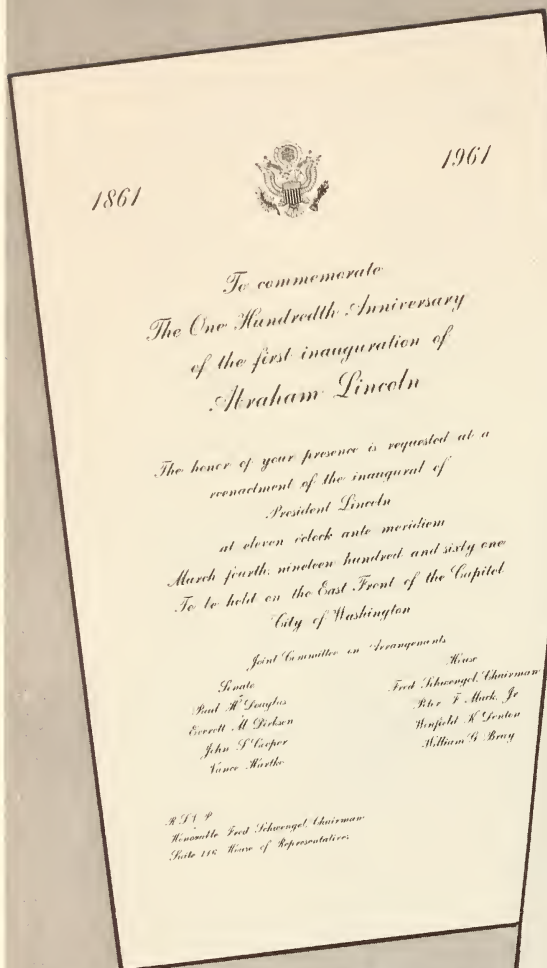 1861
1961
To commemorate
The One Hundredth Anniversary
of the first inauguration of
Abraham Lincoln
The honor of your presence is requested at a
reenactment of the inaugural of
President Lincoln
at eleven o'clock ante meridiem
March fourth, nineteen hundred and sixty one
To be held on the East Front of the Capitol
City of Washington
Joint Committee on Arrangements
Senate
Paul H Douglas
Everett M Dirksen
John S Cooper
Vance Hartke
House
Fred Schwengel, Chairman
Peter F Mack, Jr
Winfield K Denton
William G Bray
R S V P
Honorable Fred Schwengel, Chairman
Suite 116 House of Representatives